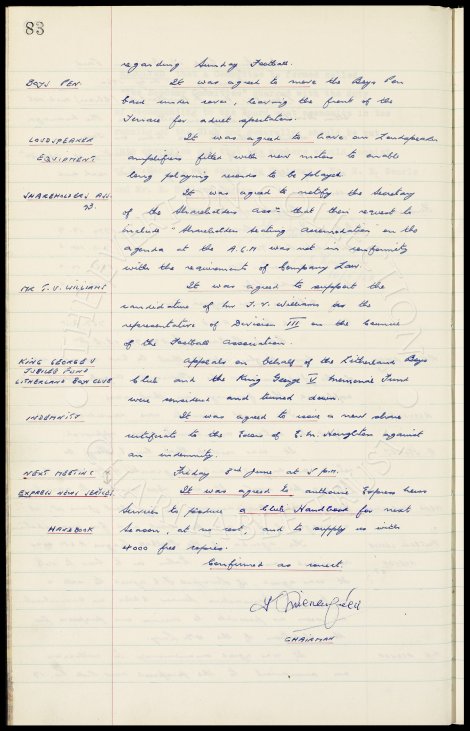 83
regarding Sunday Football.
BOYS PEN It was agreed to move the Boys Pen
back under cover, leaving the front of the
Terrace for adult spectators.
LOUDSPEAKER It was agreed to have our Loudspeaker
EQUIPMENT. amplifiers fitted with new motors to enable
long playing records to be played.
SHAREHOLDERS ASS It was agreed to notify the Secretary
of the Shareholders Assn that their request to
include "Shareholders Seating Accomodation" on the
agenda at the A.G.M was not in conformity
with the requirements of Company Law.
MR T. V. WILLIAMS It was agreed to support the
candidature of Mr T. V. Williams as the
representative of Division III on the Council
of the Football Association.
KING GEORGE V Appeals on behalf of the Litherland Boys
JUBILEE FUND
LITHERLAND BOYS CLUB Club and the King George V Memorial Fund
were considered and turned down.
INDEMNITY It was agreed to issue a new share
certificate to the Exors of E. M. Houghton against
an indemnity.
NEXT MEETING Friday 8th June at 5 p.m.
EXPRESS NEWS SERVICES It was agreed to authorise Express News
Services to produce a Club Handbook for next
HANDBOOK Season, at no cost, and to supply us with
4000 free copies.
Confirmed as correct.
CHAIRMAN